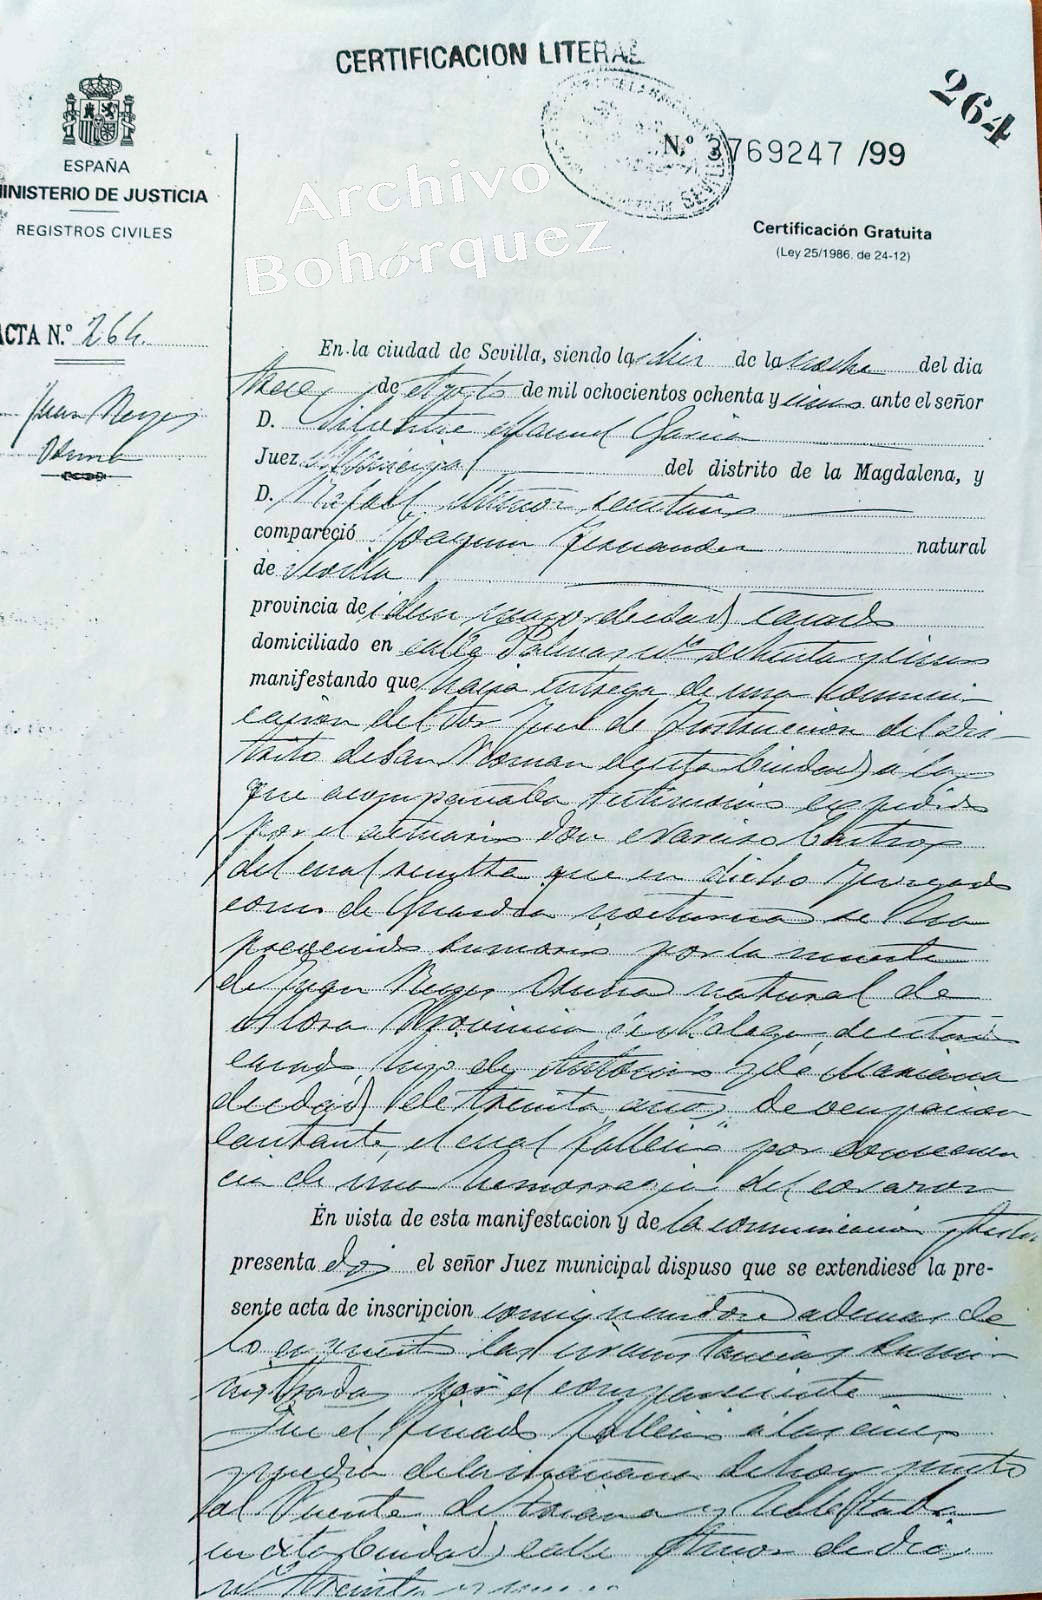 CERTIFICACION LITERAL
264
Nº 3769247 /99
ESPAÑA
MINISTERIO DE JUSTICIA
REGISTROS CIVILES
Archivo
Bohórquez
Certificación Gratuita
(Ley 25/1986, de 24-12)
ACTA N.º 264.
Juan Reyes
Osuna
En la ciudad de Sevilla, siendo las diez de la noche del dia
trece de Agosto de mil ochocientos ochenta y uno ante el señor
D. Silvestre Manuel Garcia
Juez Municipal del distrito de la Magdalena, y
D. Rafael secretario
compareció Joaquin Fernandez natural
de Sevilla
provincia de idem mayor de edad casado
domiciliado en calle Palmas nº ochenta y uno
manifestando que hacia entrega de una comuni-
cacion del Sor Juez de Instruccion del dis-
trito de San Roman de esta Ciudad, a la
que acompañaba testimonio espedido
por el actuario Don Narciso Castro,
del cual resulta que en dicho Juzgado
como de Guardia nocturna se ha
prevenido sumario por la muerte
de Juan Reyes Osuna natural de
Alora Provincia de Malaga, de estado
casado, hijo de Antonio y de Mariana
de edad de treinta años, de ocupacion
cantante, el cual falleció por consecuen
cia de una hemorragia del corazon
En vista de esta manifestacion y de la comunicacion y testimº
presenta dos el señor Juez municipal dispuso que se extendiese la pre-
sente acta de inscripcion consignandose ademas de
lo espuesto las circunstancias sumi-
nistradas por el compareciente
Que el finado falleció á las cinco
y media de la mañana de hoy junto
al Puente de Triana y habitaba
en esta Ciudad, calle Amor de Dios
nº treinta y uno